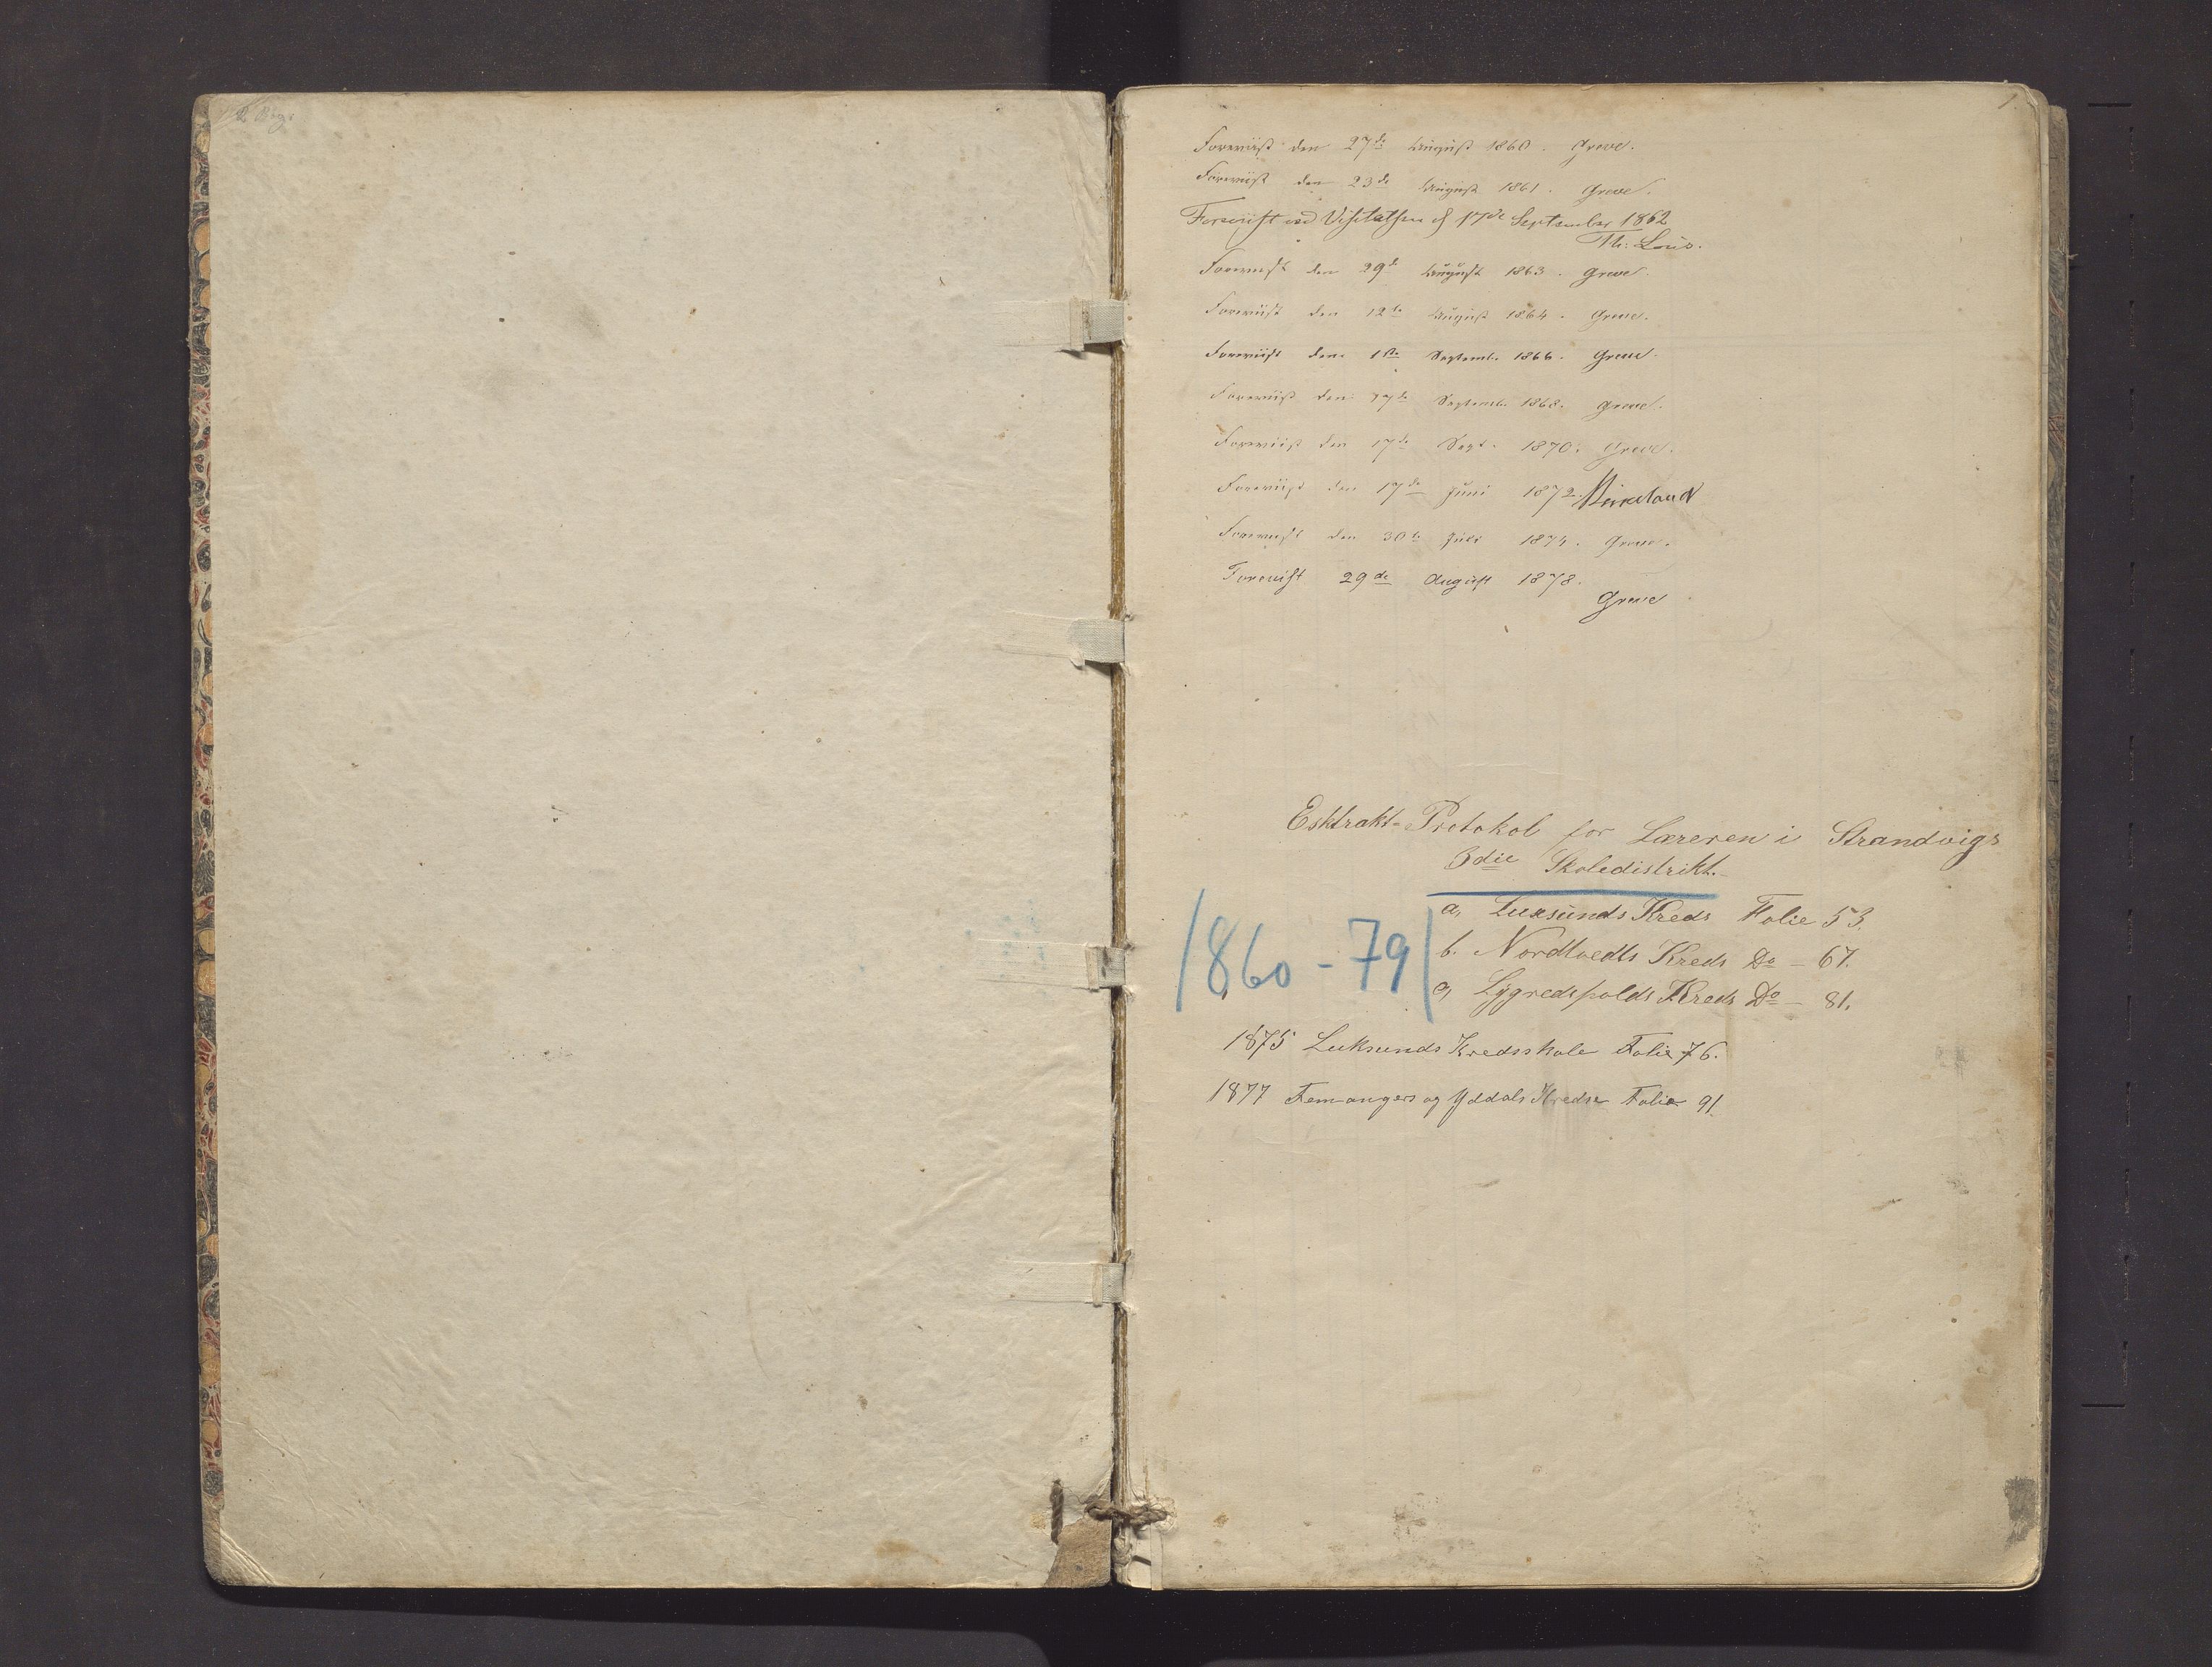 1.
Foreviist den 27de August 1860. Greve.
Foreviist den 23de August 1861. Greve.
Foreviist ved Visitatsen d 17de September 1862
Foreviist den 29de August 1863. Greve.
Foreviist den 12te August 1864. Greve.
Foreviist den 1ste Septemb. 1866. Greve.
Foreviist den 17de Septemb. 1868. Greve.
Foreviist den 17de Sept. 1870. Greve.
Foreviist den 17de Juni 1872. Birkeland
Foreviist den 30te Juli 1874. Greve.
Forevist 29de August 1878.
Greve
Esktrakt-Protokol for Læreren i Strandvigs
3die Skoledistrikt.
a, Luxsunds Kreds Folie 53.
1860-79
b. Nordtvedts Kreds Do - 67.
c, Lygredspolds Kreds Do - 81.
1875 Luksunds Kredsskole Folie 76.
1877 Femangers og Yddals Kredse Folie 91